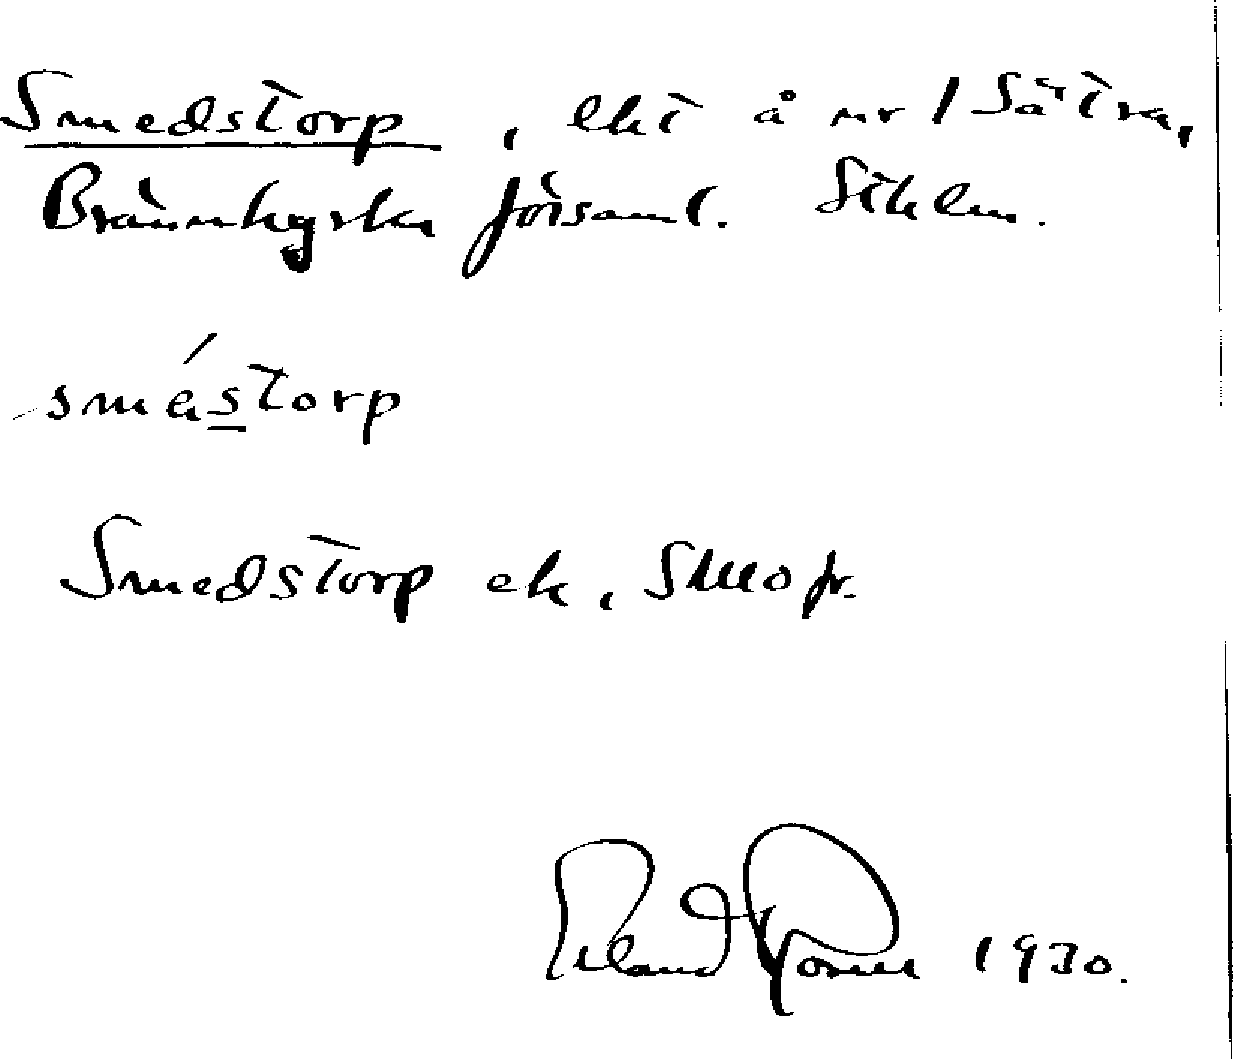 Smedstorp, lht å nr 1 Sätra,
Brännkyrka förs:aml. Sthlm.
smé̱storp
Smedstorp ek.
1930.